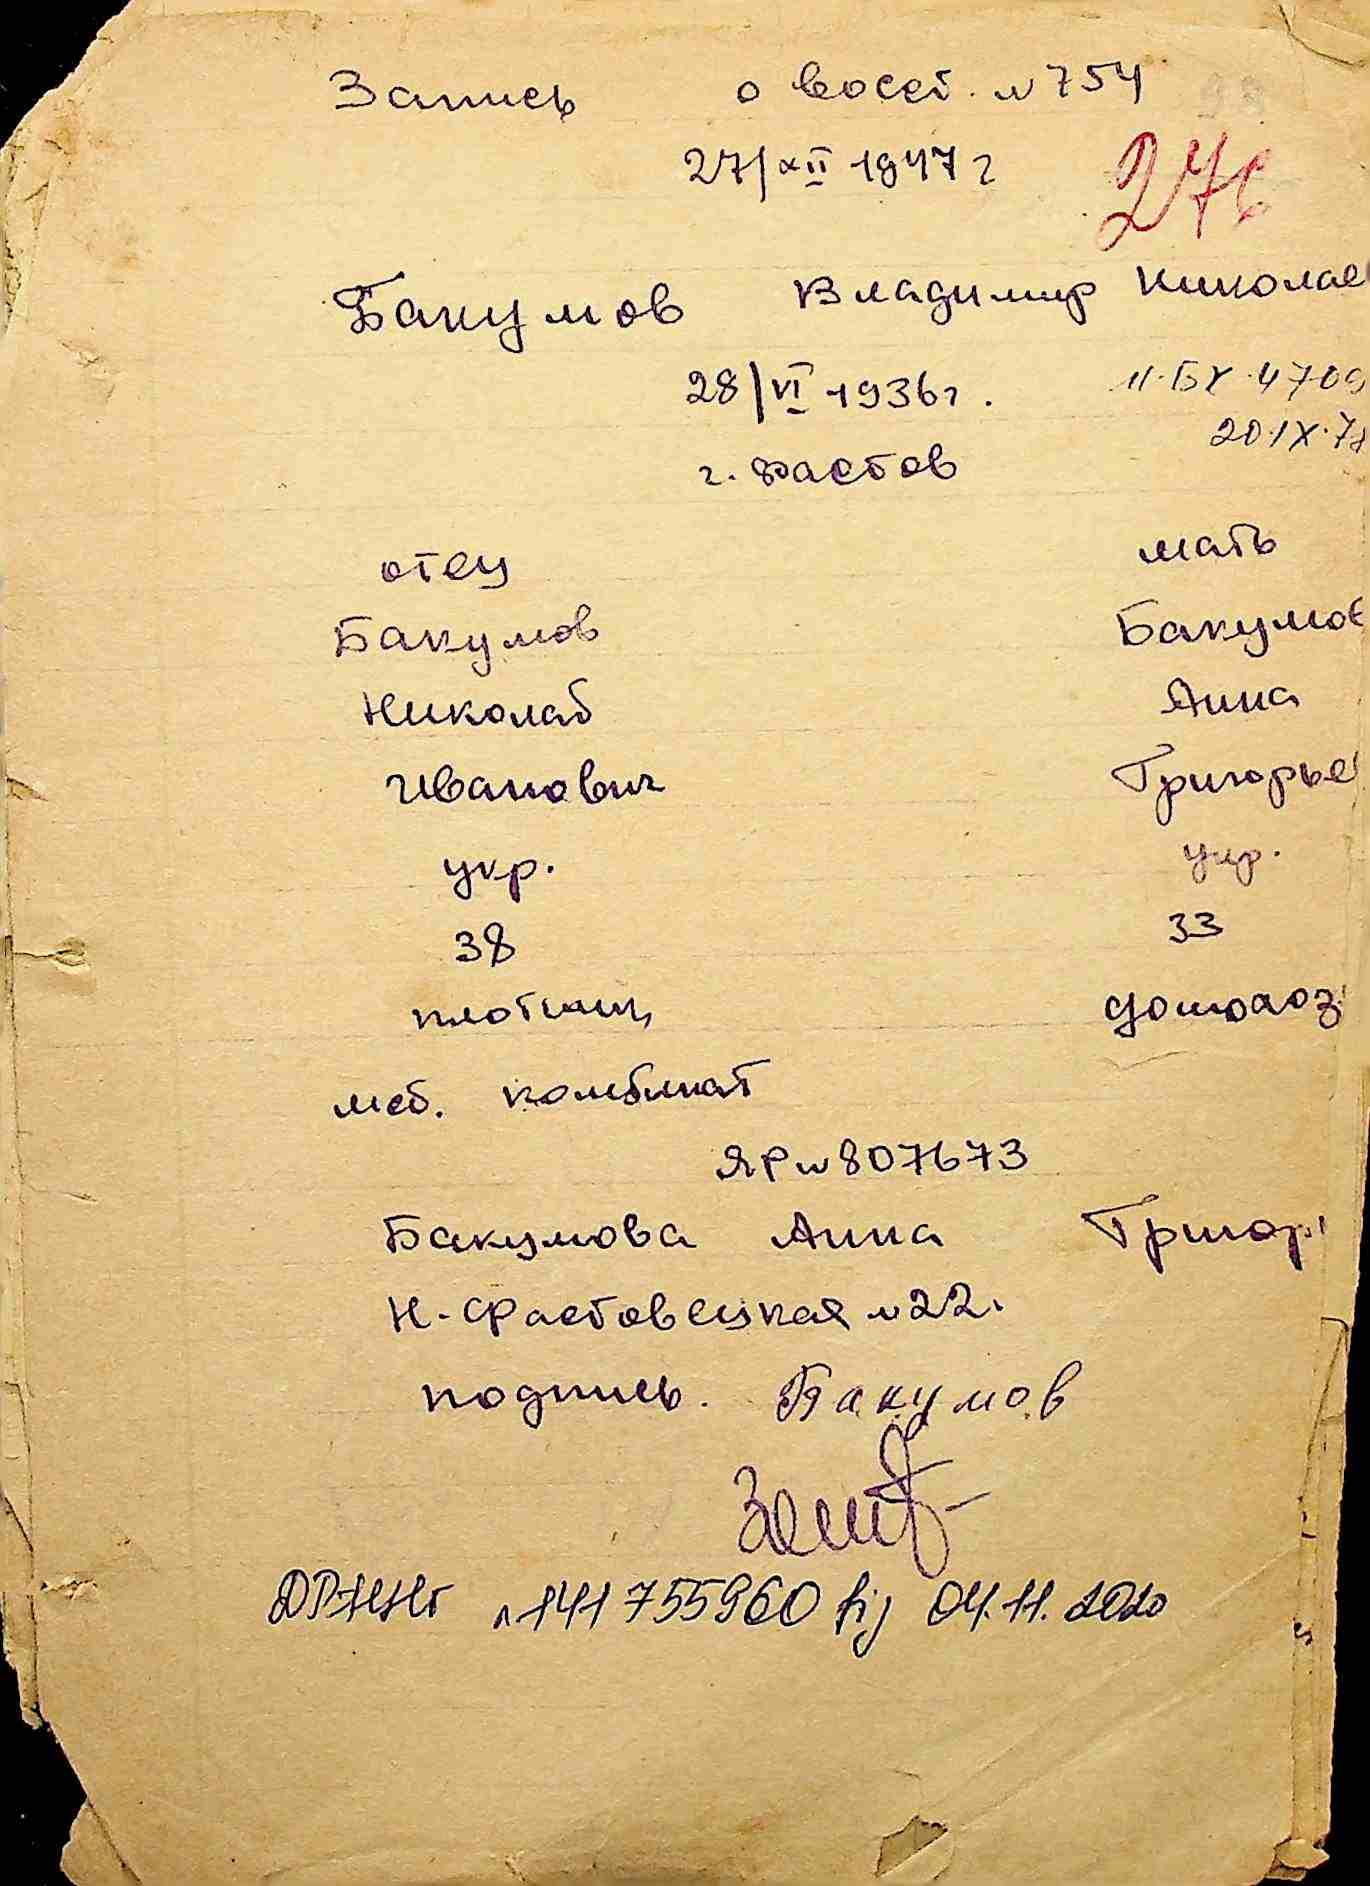 Запись о восст. N 754
27/XII 1947 г
276
Бакумов Владимир Николае
28/VI 1936 г.
II-БК 4709
20.IX.7
г. Фастов
отец мать
Бакумов Бакумов
Николай Анна
Иванович Григорье
укр. укр.
38 33
плотник домохоз
меб. комбинат
ЯР N 807673
Бакумова Анна Григор
Н-Фастовецкая N 22.
подпись. Бакумов
N 141755960 від 04.11.2020